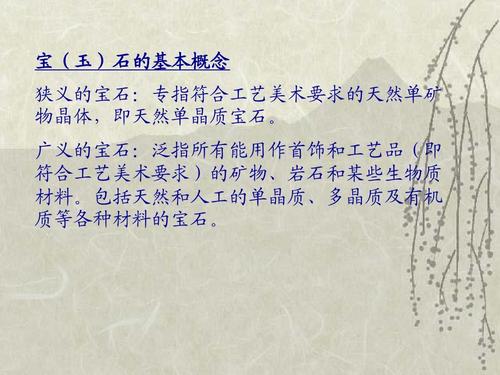 宝（玉）石的基本概念
狭义的宝石：专指符合工艺美术要求的天然单矿
物晶体，即天然单晶质宝石。
广义的宝石：泛指所有能用作首饰和工艺品（即
符合工艺美术要求）的矿物、岩石和某些生物质
材料。包括天然和人工的单晶质、多晶质及有机
质等各种材料的宝石。